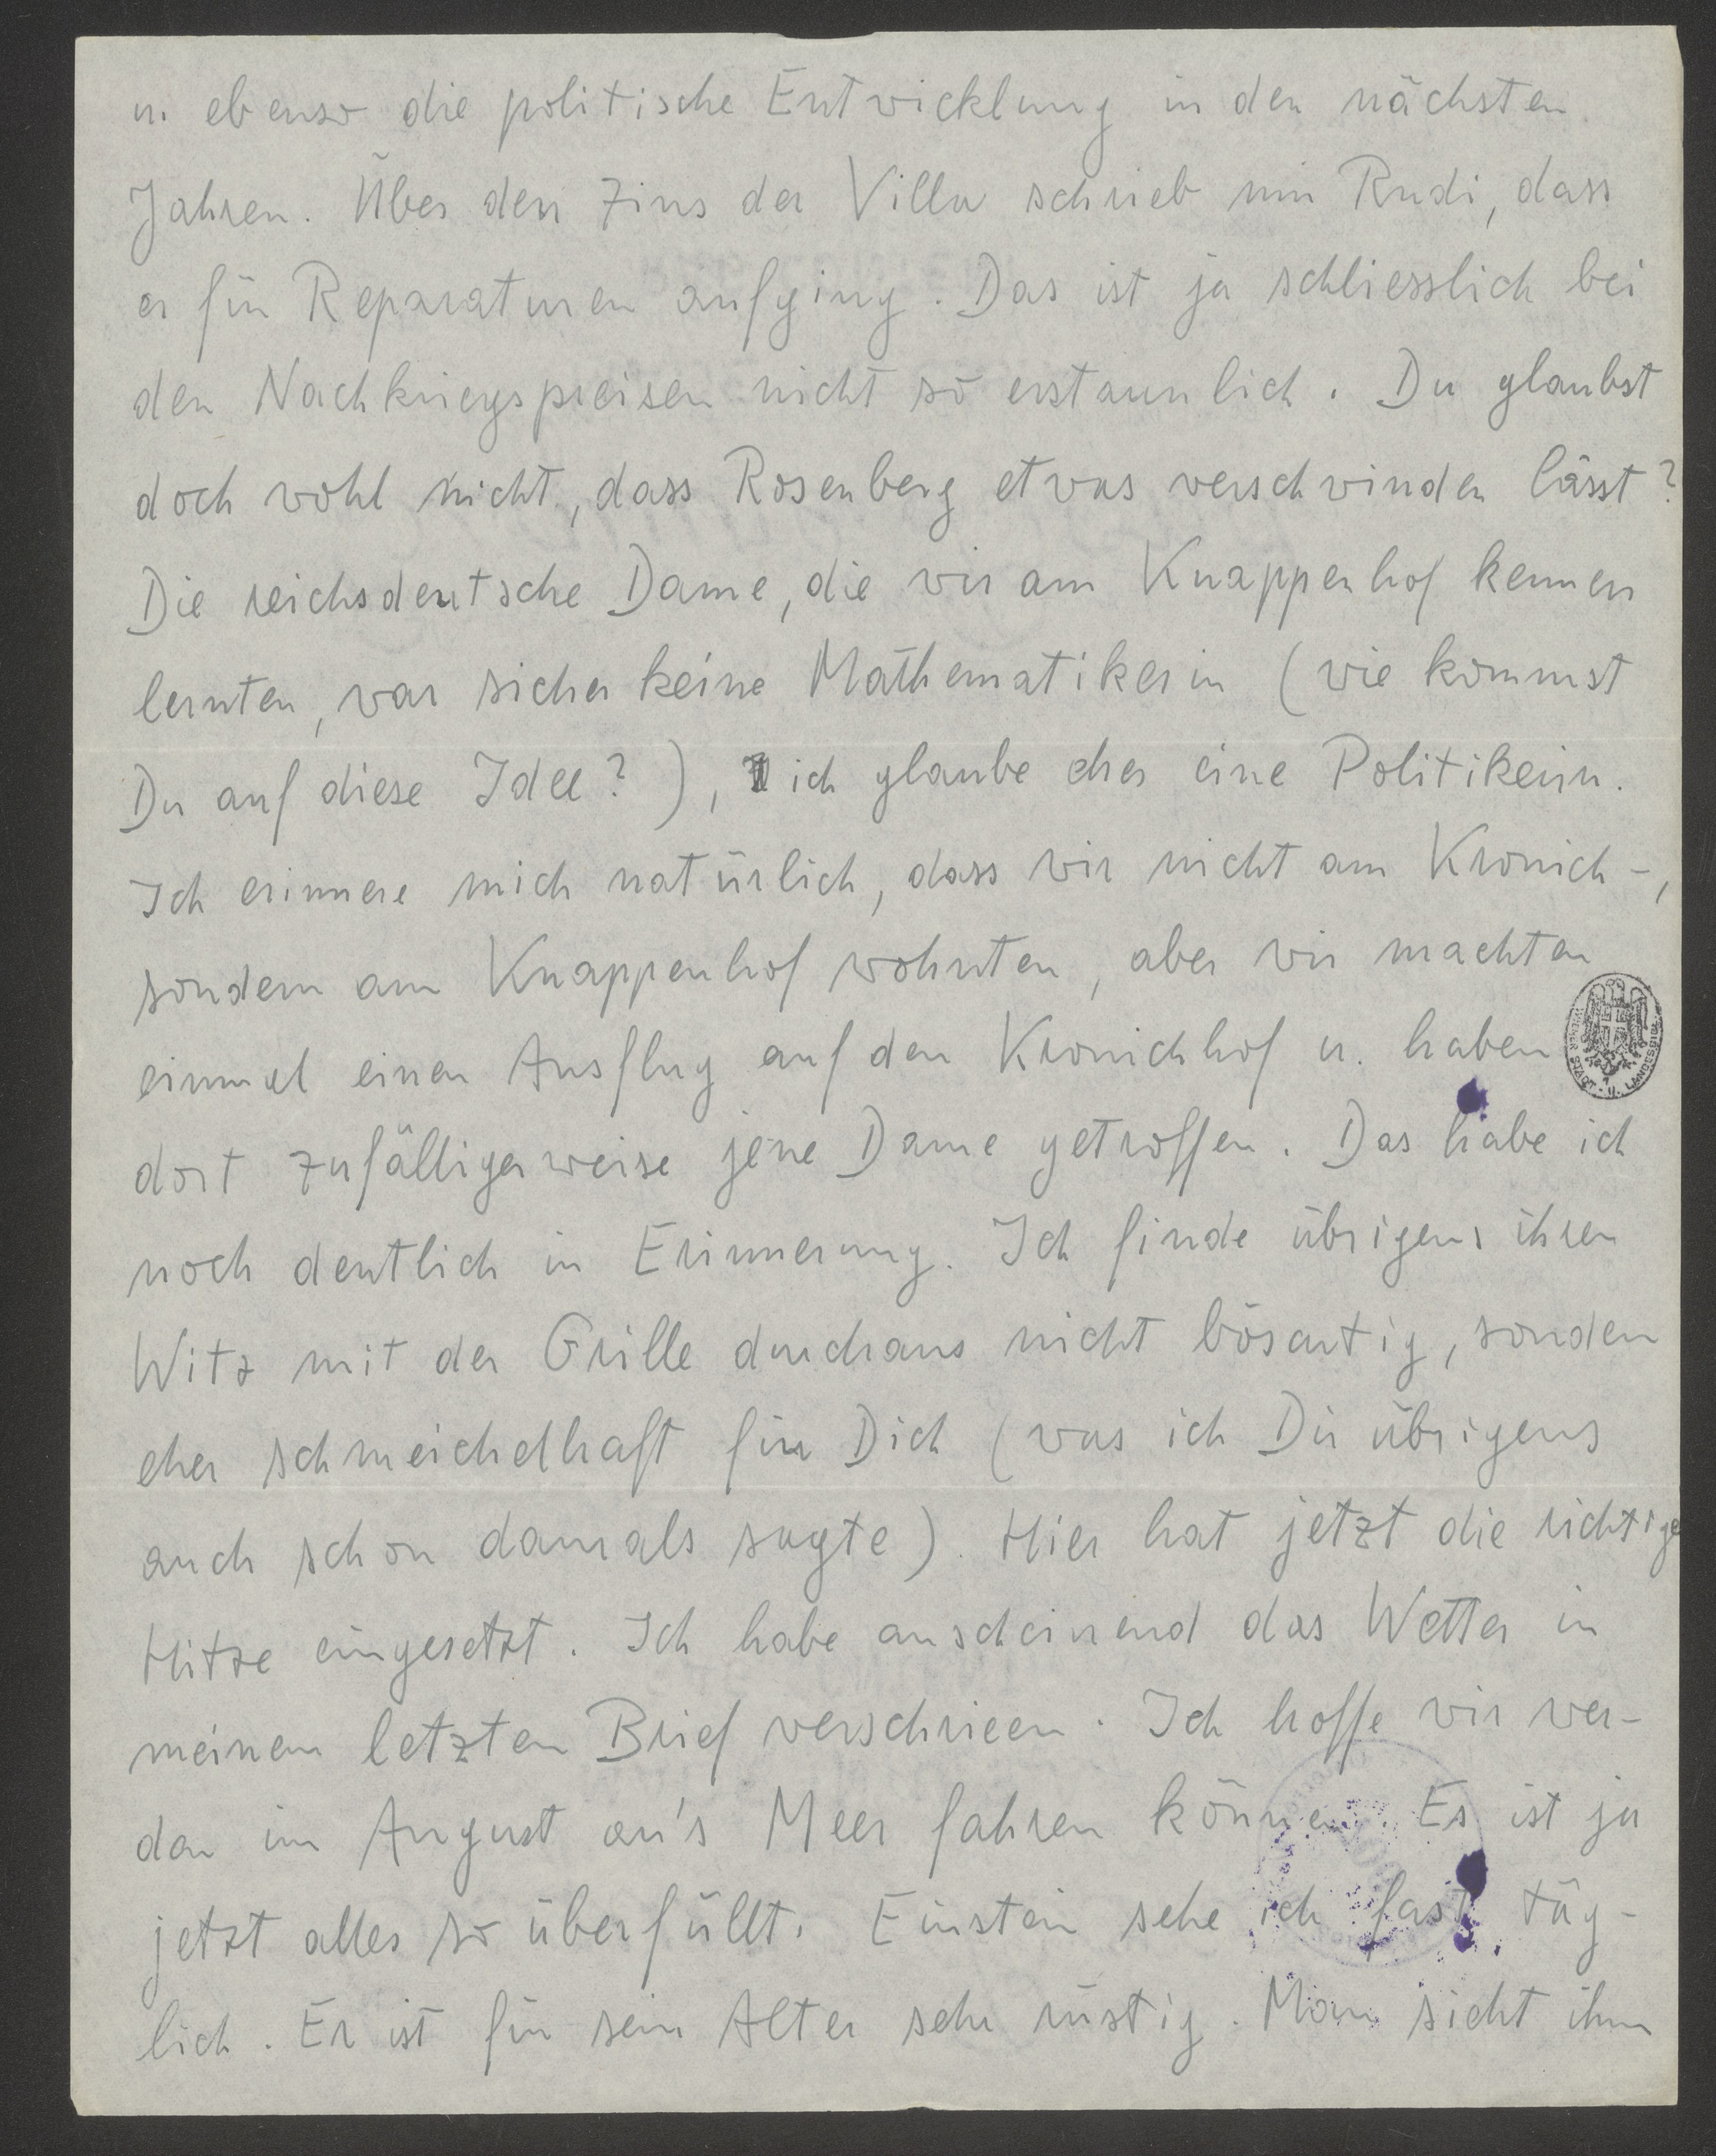 u. ebenso die politische Entwicklung in den nächsten
Jahren. Über den Zins der Villa schrieb mir Rudi, dass
er für Reparaturen aufging. Das ist ja schliesslich bei
den Nachkriegspreisen nicht so erstaunlich. Du glaubst
doch wohl nicht, dass Rosenberg etwas verschwinden lässt?
Die reichsdeutsche Dame, die wir am Knappenhof kennen
lernten, war sicher keine Mathematikerin (wie kommst
Du auf diese Idee?), ich glaube eher eine Politikerin.
Ich erinnere mich natürlich, dass wir nicht am Kronich-,
sondern am Knappenhof wohnten, aber wir machten
einmal einen Ausflug auf den Kronichhof u. haben
WIENER STADT- U. LANDESBIBL.
dort zufälligerweise jene Dame getroffen. Das habe ich
noch deutlich in Erinnerung. Ich finde übrigens ihren
Witz mit der Grille durchaus nicht bösartig, sondern
eher schmeichelhaft für Dich (was ich Dir übrigens
auch schon damals sagte). Hier hat jetzt die richtige
Hitze eingesetzt. Ich habe anscheinend das Wetter in
meinem letzten Brief verschrieen. Ich hoffe wir wer-
den im August an's Meer fahren können. Es ist ja
jetzt alles so überfüllt. Einstein sehe ich fast täg-
lich. Er ist für sein Alter sehr rüstig. Man sieht ihm